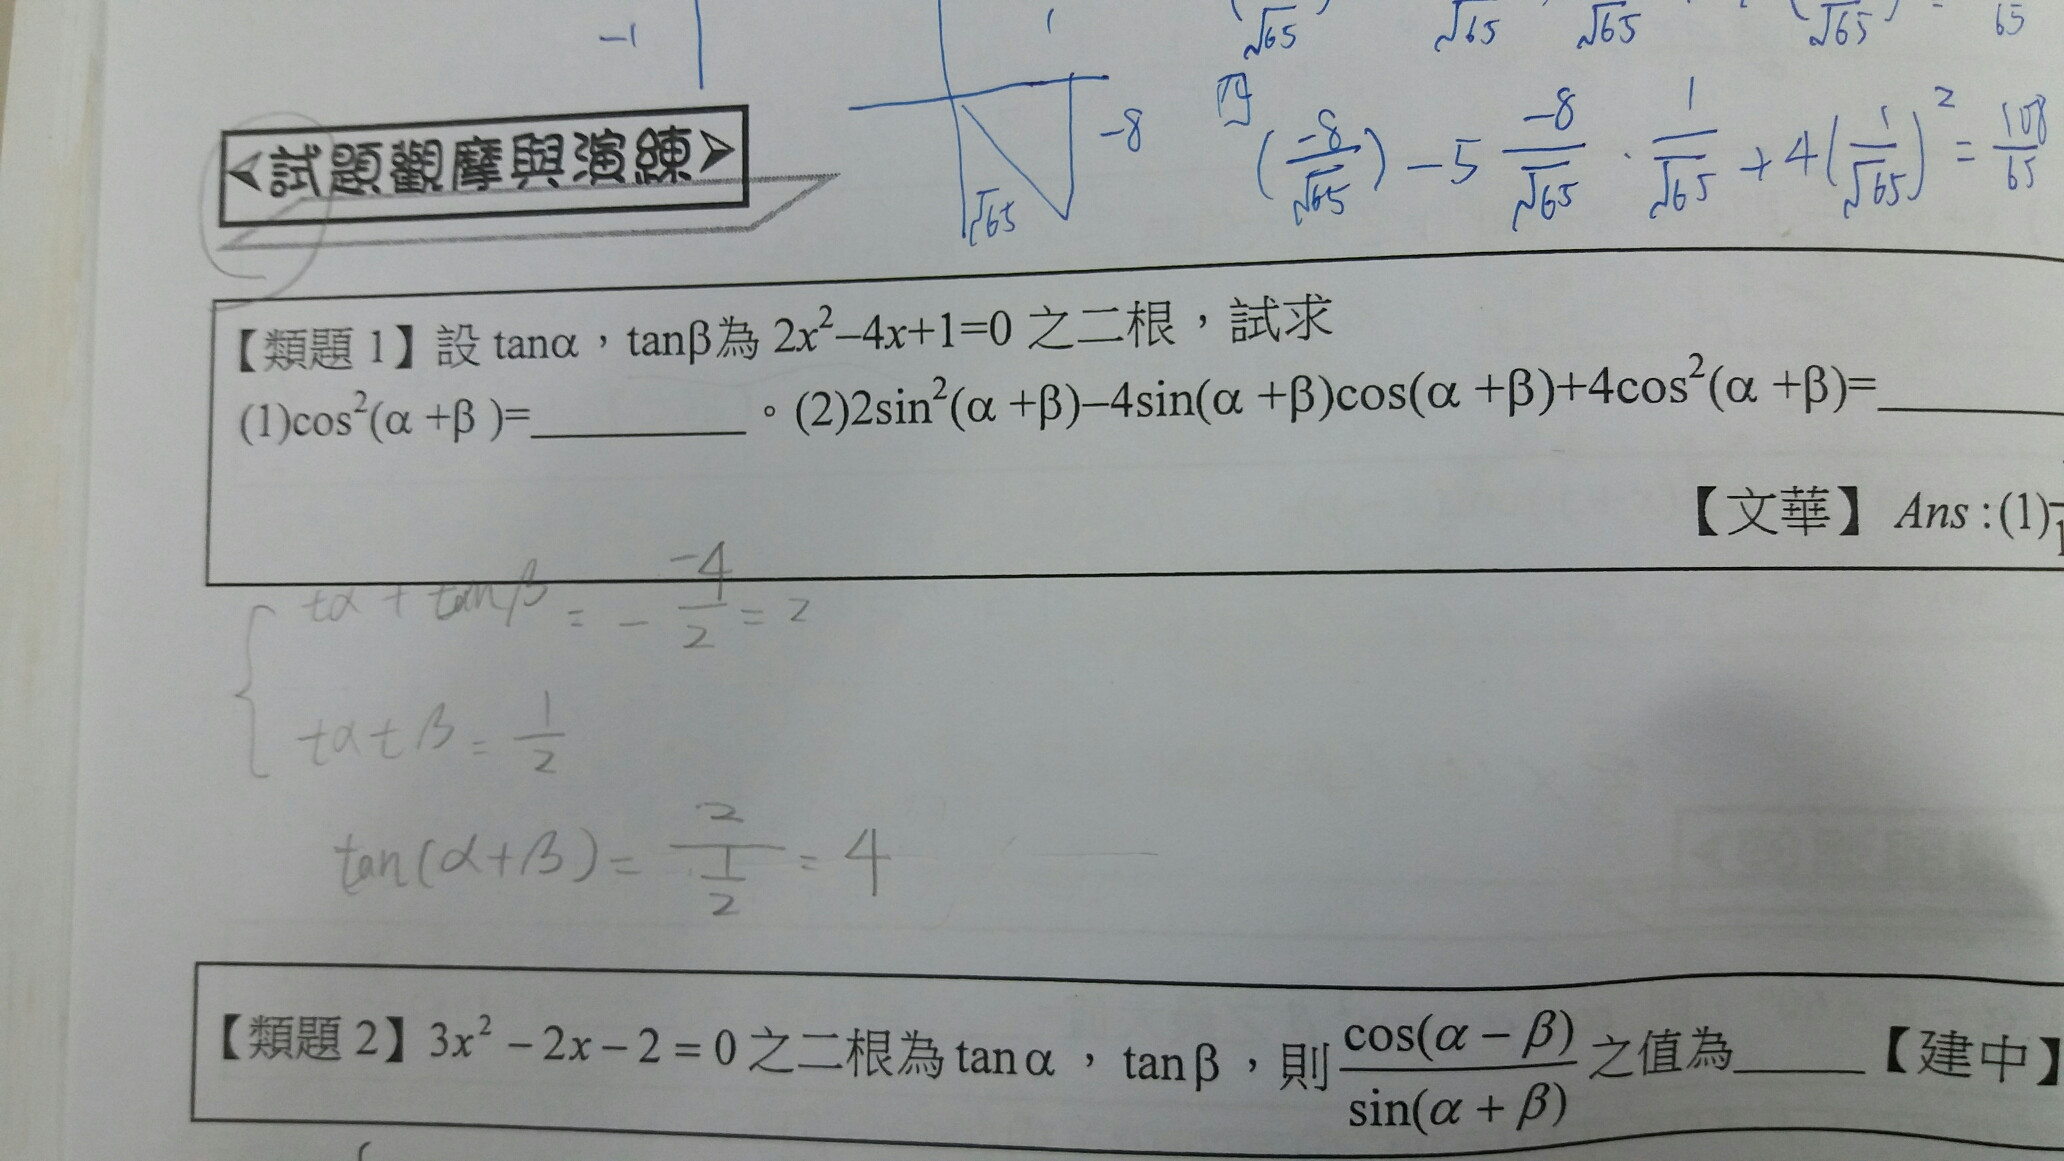 -1
1
√65 √65 √65 √65 65
-8
√65
(-8/√65) -5 -8/√65 · 1/√65 + 4(1/√65)² = 108/65
<試題觀摩與演練>
【類題 1】設 tanα，tanβ為 2x²–4x+1=0 之二根，試求
(1)cos²(α +β )=________。(2)2sin²(α +β)–4sin(α +β)cos(α +β)+4cos²(α +β)=________
【文華】 Ans : (1)
tα + tanβ = - -4/2 = 2
tαtβ = 1/2
tan(α+β) = 2/(1/2) = 4
【類題 2】3x² – 2x – 2 = 0 之二根為 tanα，tanβ，則 cos(α – β)/sin(α + β) 之值為_____【建中】